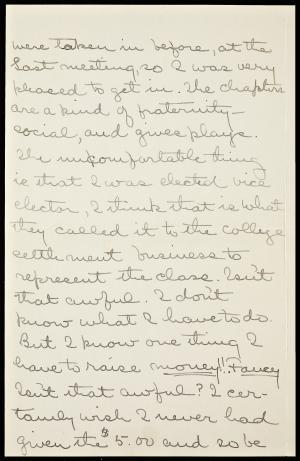 were taken in before, at the
last meeting, so I was very
pleased to get in. The chapters
are a kind of fraternity—
social, and gives plays.
The uncomfortable thing
is that I was elected vice
elector, I think that is what
they called it to the college
settlement business to
represent the class. Isn't
that awful. I don't
know what I have to do.
But I know one thing I
have to raise money!! Fancy
Isn't that awful? I cer-
tainly wish I never had
given the $5.00 and so be